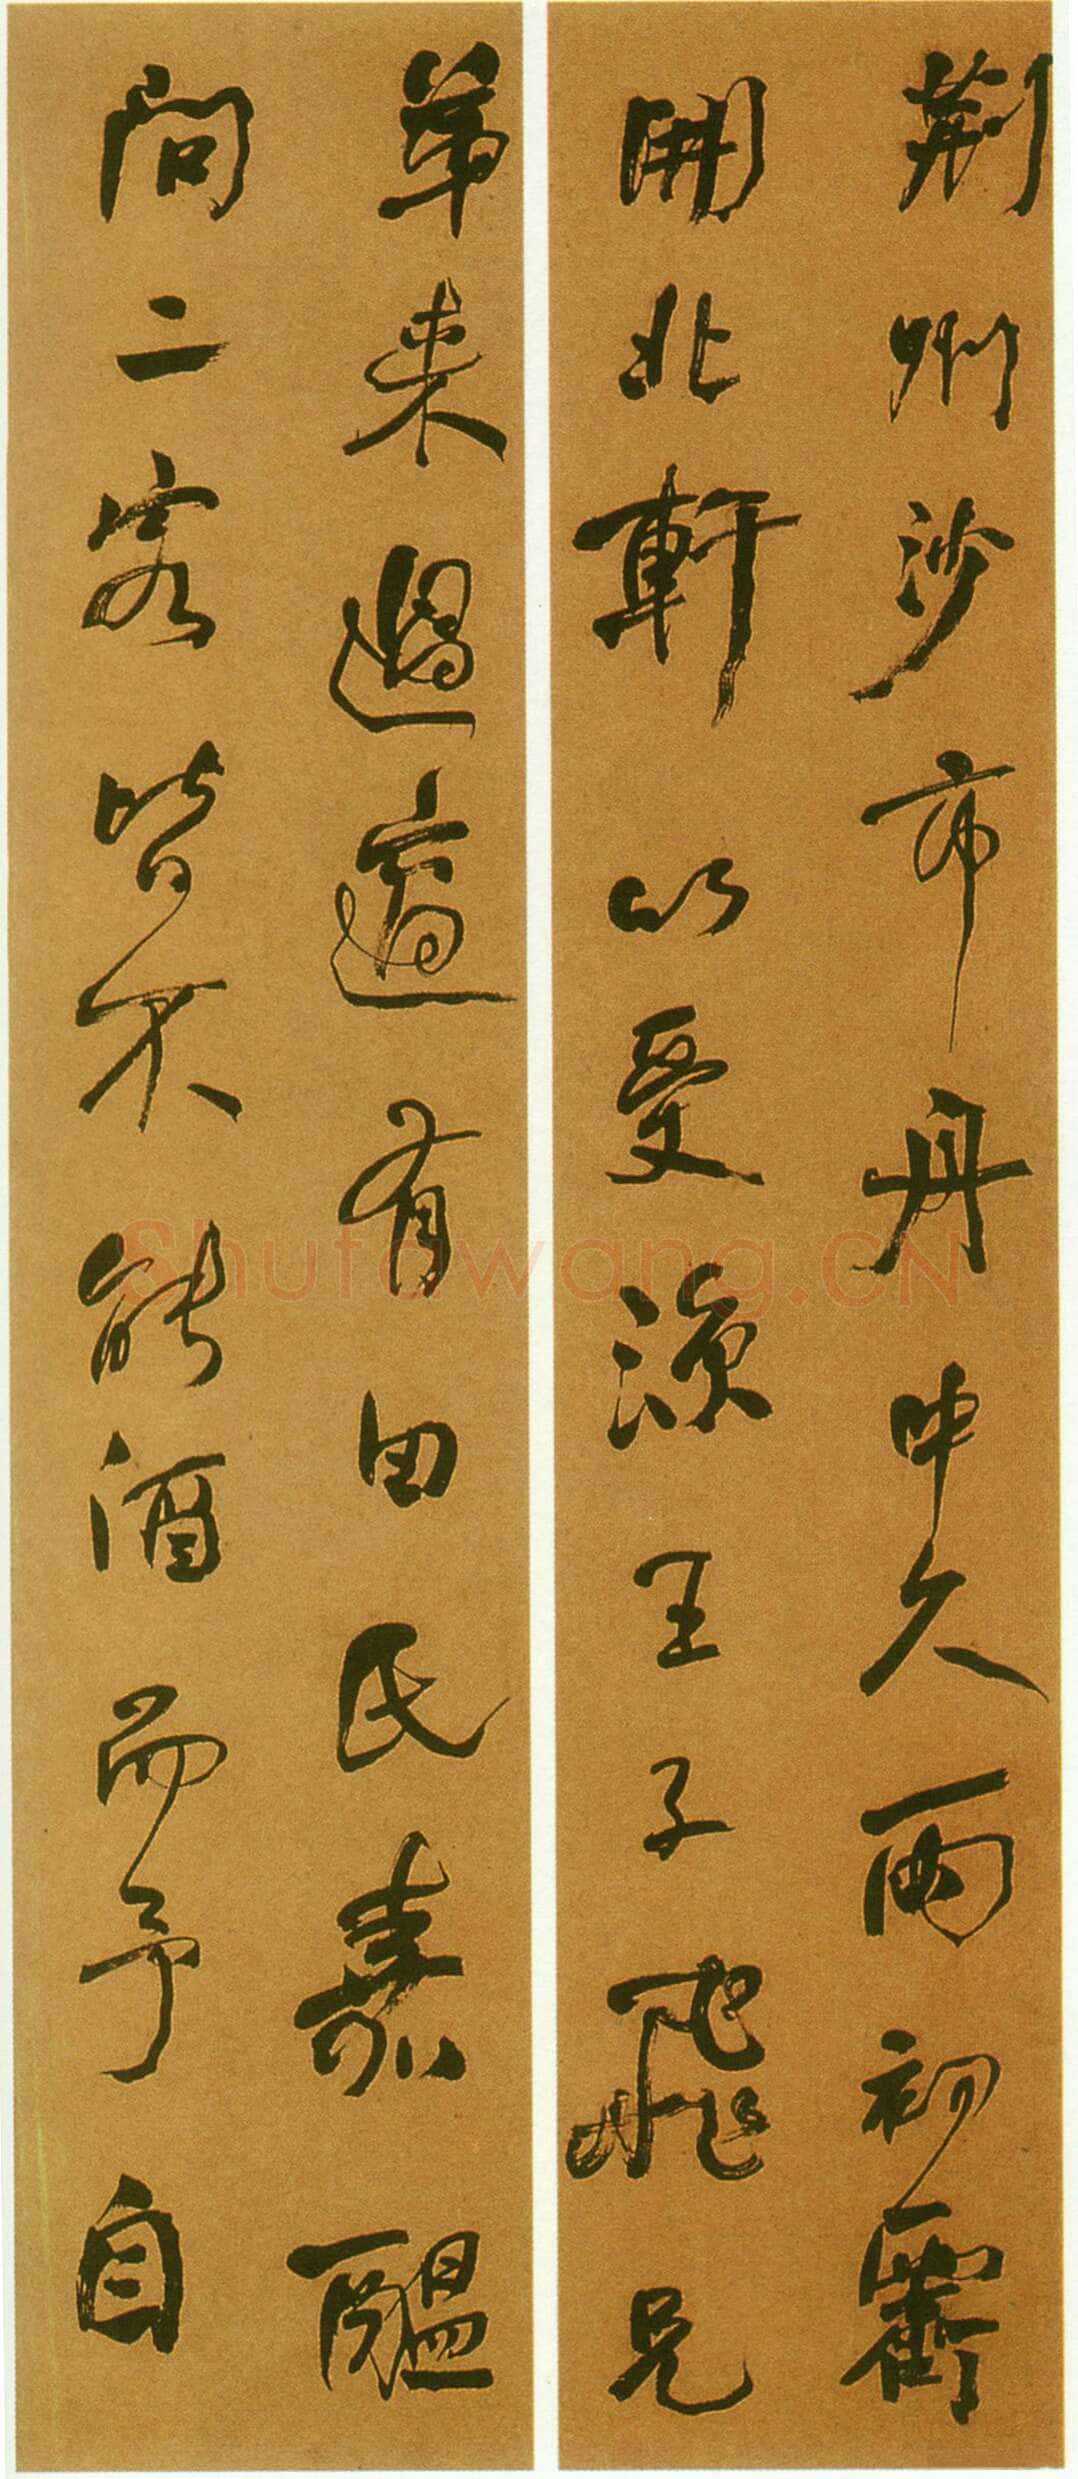 荊州沙市舟中久雨初霽
開北軒以受涼王子飛兄
弟来過適有田氏嘉醖
問二客皆不能酒而予自
Shufawang.CN